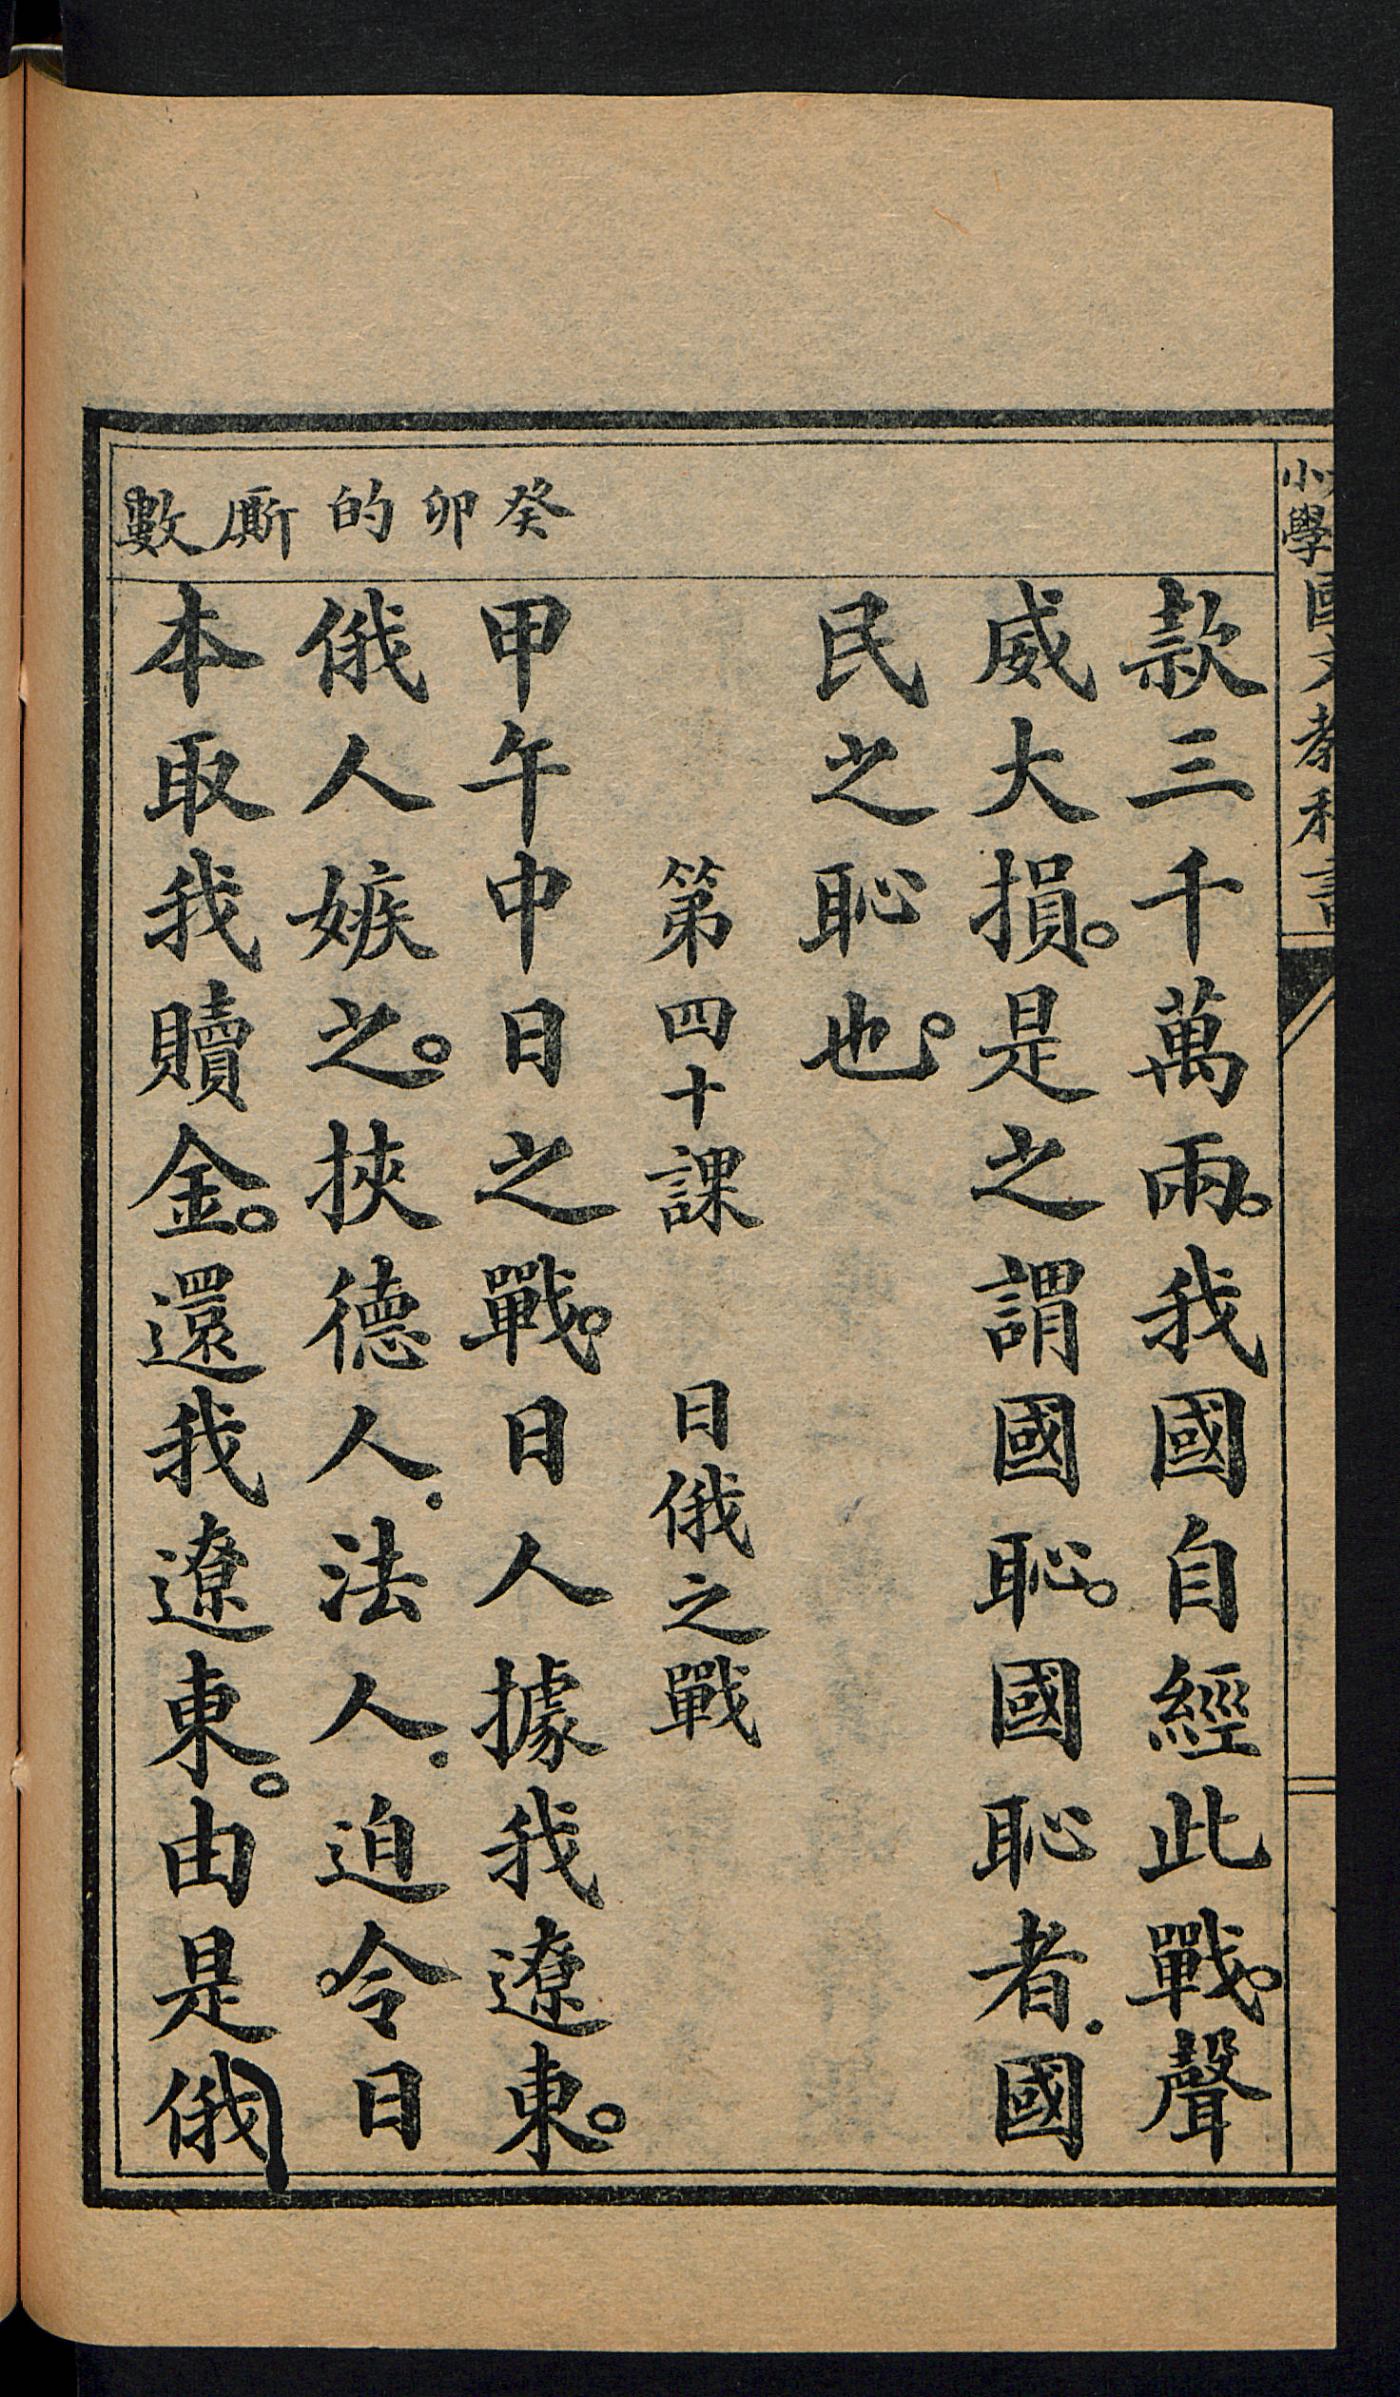 小學國文教科書
癸卯的廝數
款三千萬兩。我國自經此戰。聲
威大損。是之謂國恥。國恥者.國
民之恥也。
第四十課 日俄之戰
甲午中日之戰。日人據我遼東。
俄人嫉之。挾德人.法人.迫令日
本取我贖金。還我遼東。由是俄